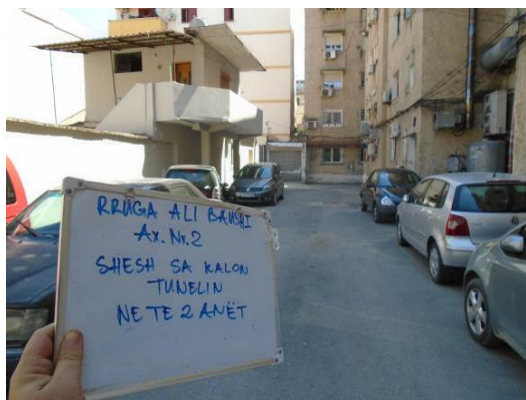 RRUGA ALI BAUSHI
Ax. Nr.2
SHESH SA KALON
TUNELIN
NE TE 2 ANËT